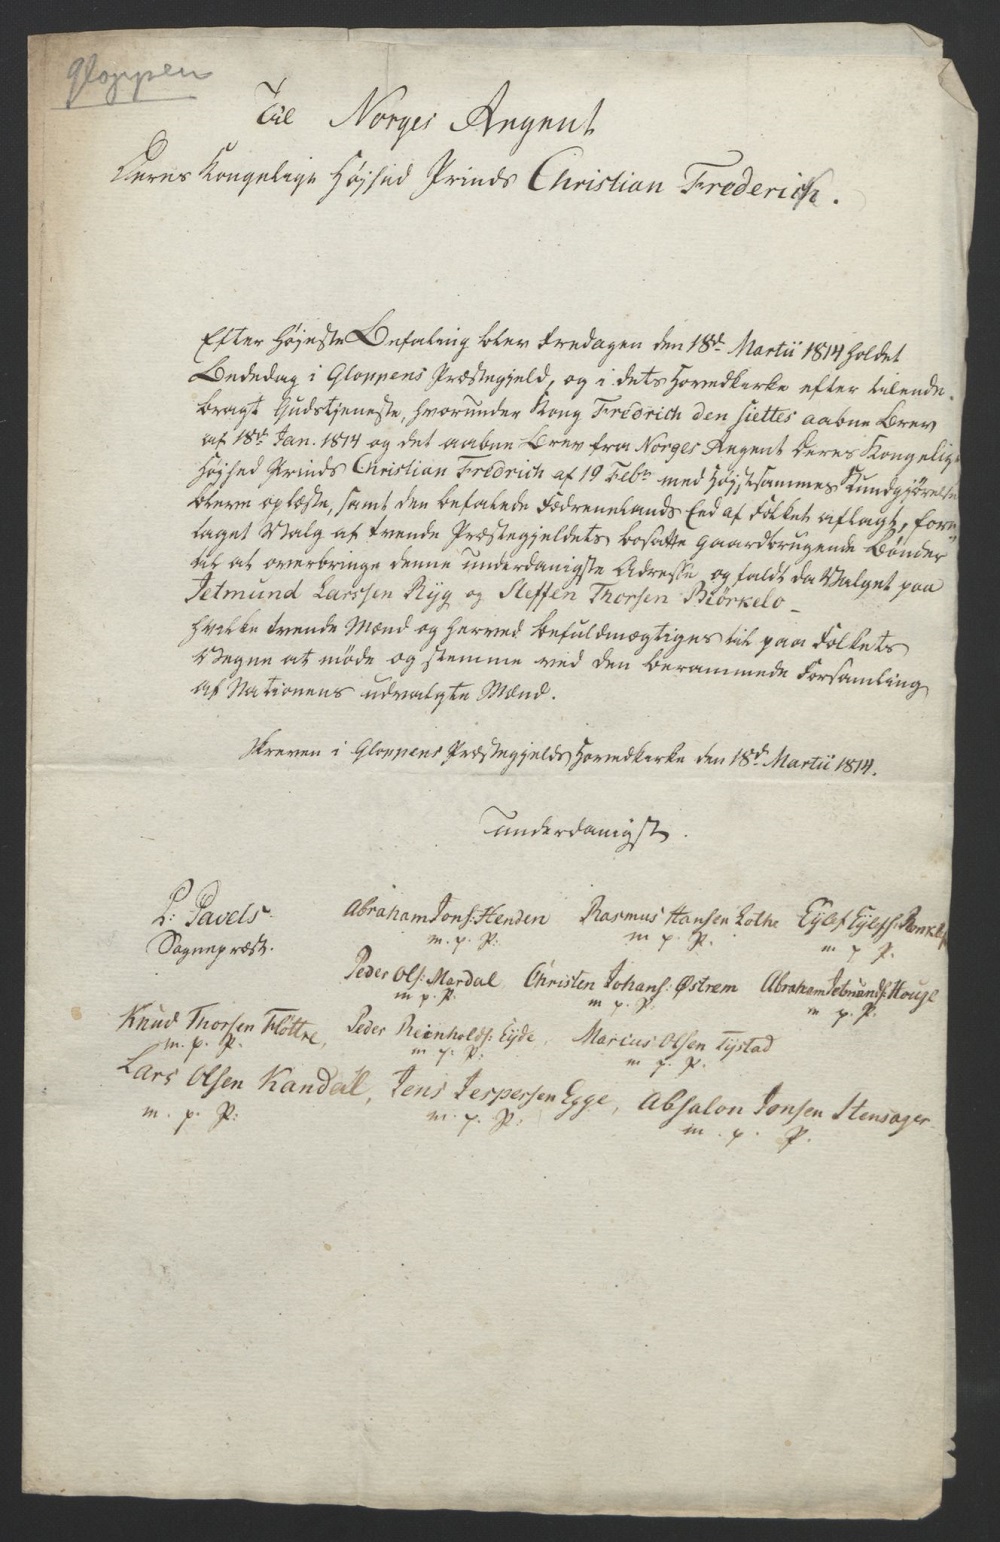 Gloppen
Til Norges Regent
Deres Kongelige Højhed Prinds Christian Frederich.
Efter Højeste Befaling blev Fredagen den 18de Martii 1814 holdet
Bededag i Gloppens Præstegjeld, og i dets Hovedkirke efter tilende-
bragt Gudstjeneste, hvorunder Kong Fredrich den siettes aabne Brev
af 18de Jan. 1814 og det aabne Brev fra Norges Regent Deres Kongelige
Højhed Prinds Christian Fredrich af 19 Febr med Højstsammes Kundgjørelse
bleve oplæste, samt den befalede Fædrenelands Eed af Folket aflagt, fore-
taget Valg af tvende Præstegjeldets bosatte gaardbrugende Bønder
til at overbringe denne underdanigste Adresse, og faldt da Valget paa
Jetmund Larssen Ryg og Steffen Thorsen Biörkelo -
hvilke tvende Mænd og herved befuldmægtiges til paa Folkets
Vegne at møde og stemme ved den berammede Forsamling
af Nationens udvalgte Mænd.
Skreven i Gloppens Præstegjelds Hovedkirke den 18de Martii 1814.
underdanigst.
P: Pavels. Abraham Jons: Henden Rasmus Hansen Lothe Eÿlef Eÿlefs:
Sognepræst. m. p. p. m. p. p. m. p. p.
Peder Ols: Mardal Christen Johans: Østrem Abraham Jetmunds: Houge
m. p. p. m. p. p. m. p. p.
Knud Thorsen Fløttre, Peder Reinholds: Eÿde, Marius Olsen Tÿstad
m. p. p. m. p. p. m. p. p.
Lars Olsen Kandal, Jens Jespersen Egge, Absalon Jonsen Stensager
m. p. p: m. p. p. m. p. p.